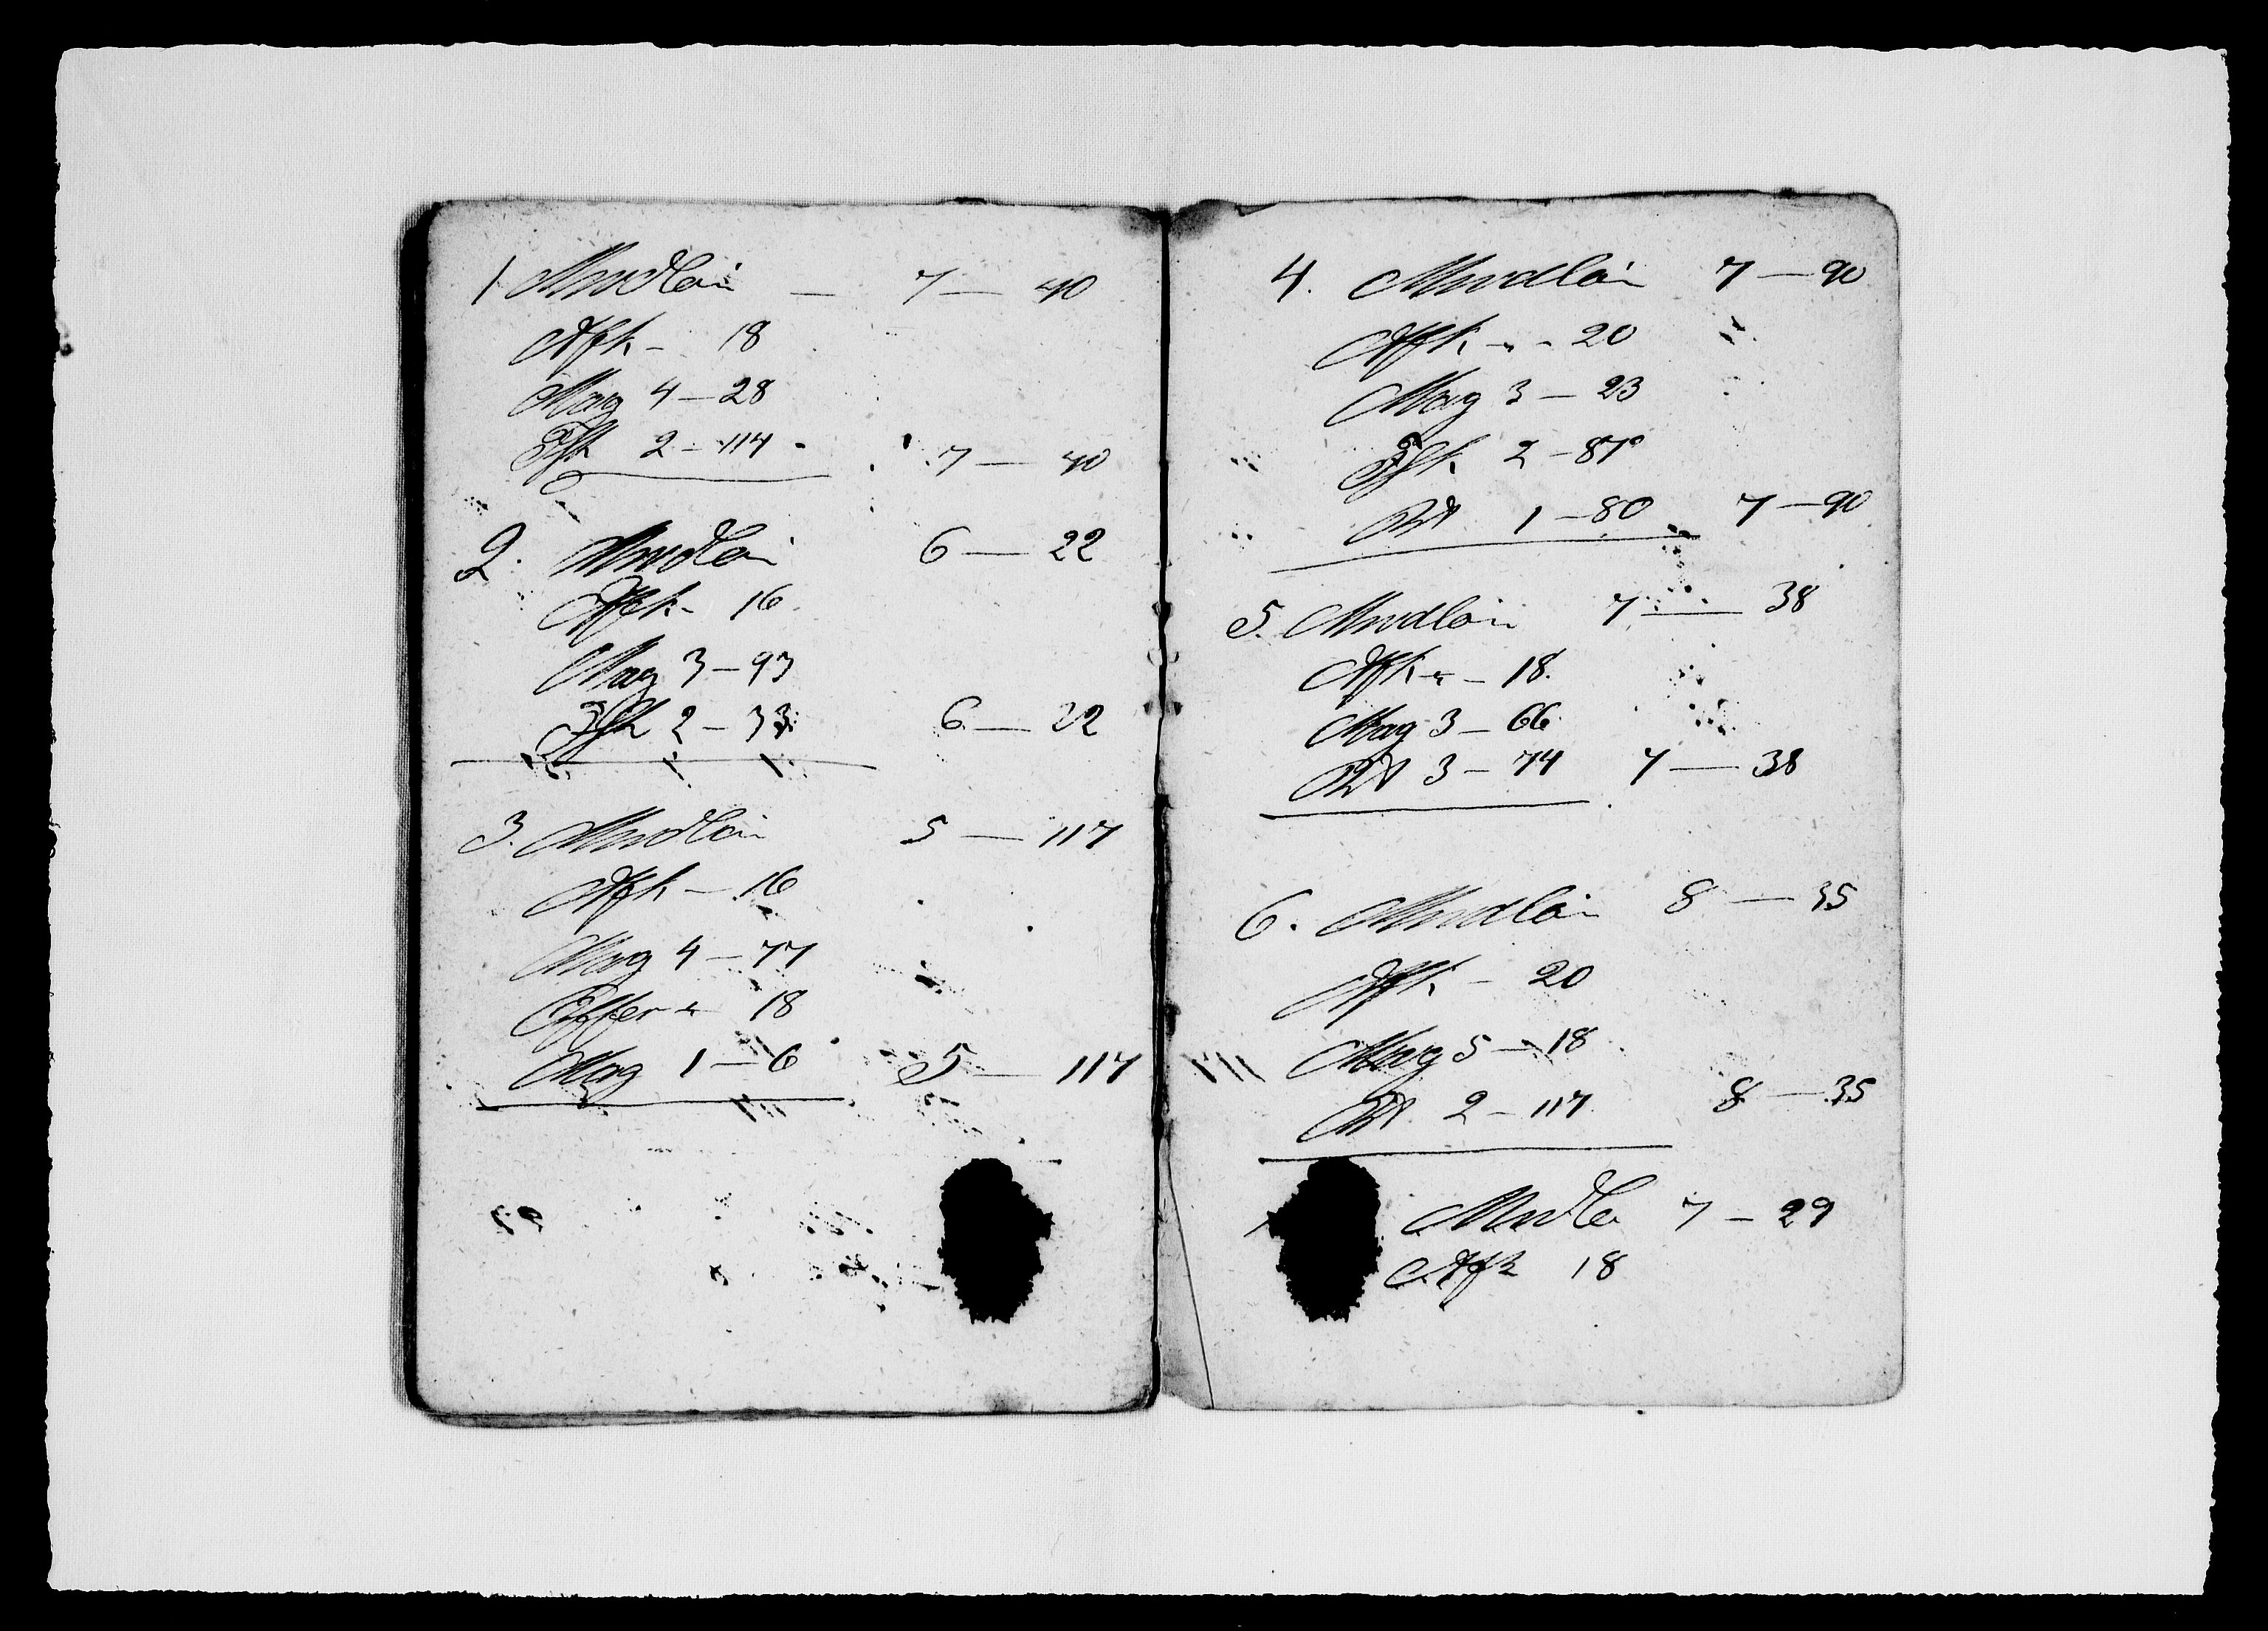 1 Mndlai — 7 — 40
Afk - 18
Mag 4 — 28
2 - 114 - 7 — 40
2. Mndlai 6 — 22
Afk - 16
Mag 3 — 93
2 - 33 6 — 22
3. Mndlai 5 — 117
Afk — 16
Mag 4 — 77
18
Mag 1 — 6 5 — 117
4. Mndlai 7 — 90
Afk " - 20
Mag 3 — 23
2 - 87
1 - 80 7 — 90
5. Mndlai 7 — 38
Afk " - 18
Mag 3 - 66
3 - 74 7 — 38
6. Mndlai 8 — 35
Afk - 20
Mag 5 — 18
2 - 117 8 — 35
7 — 29
Afk 18